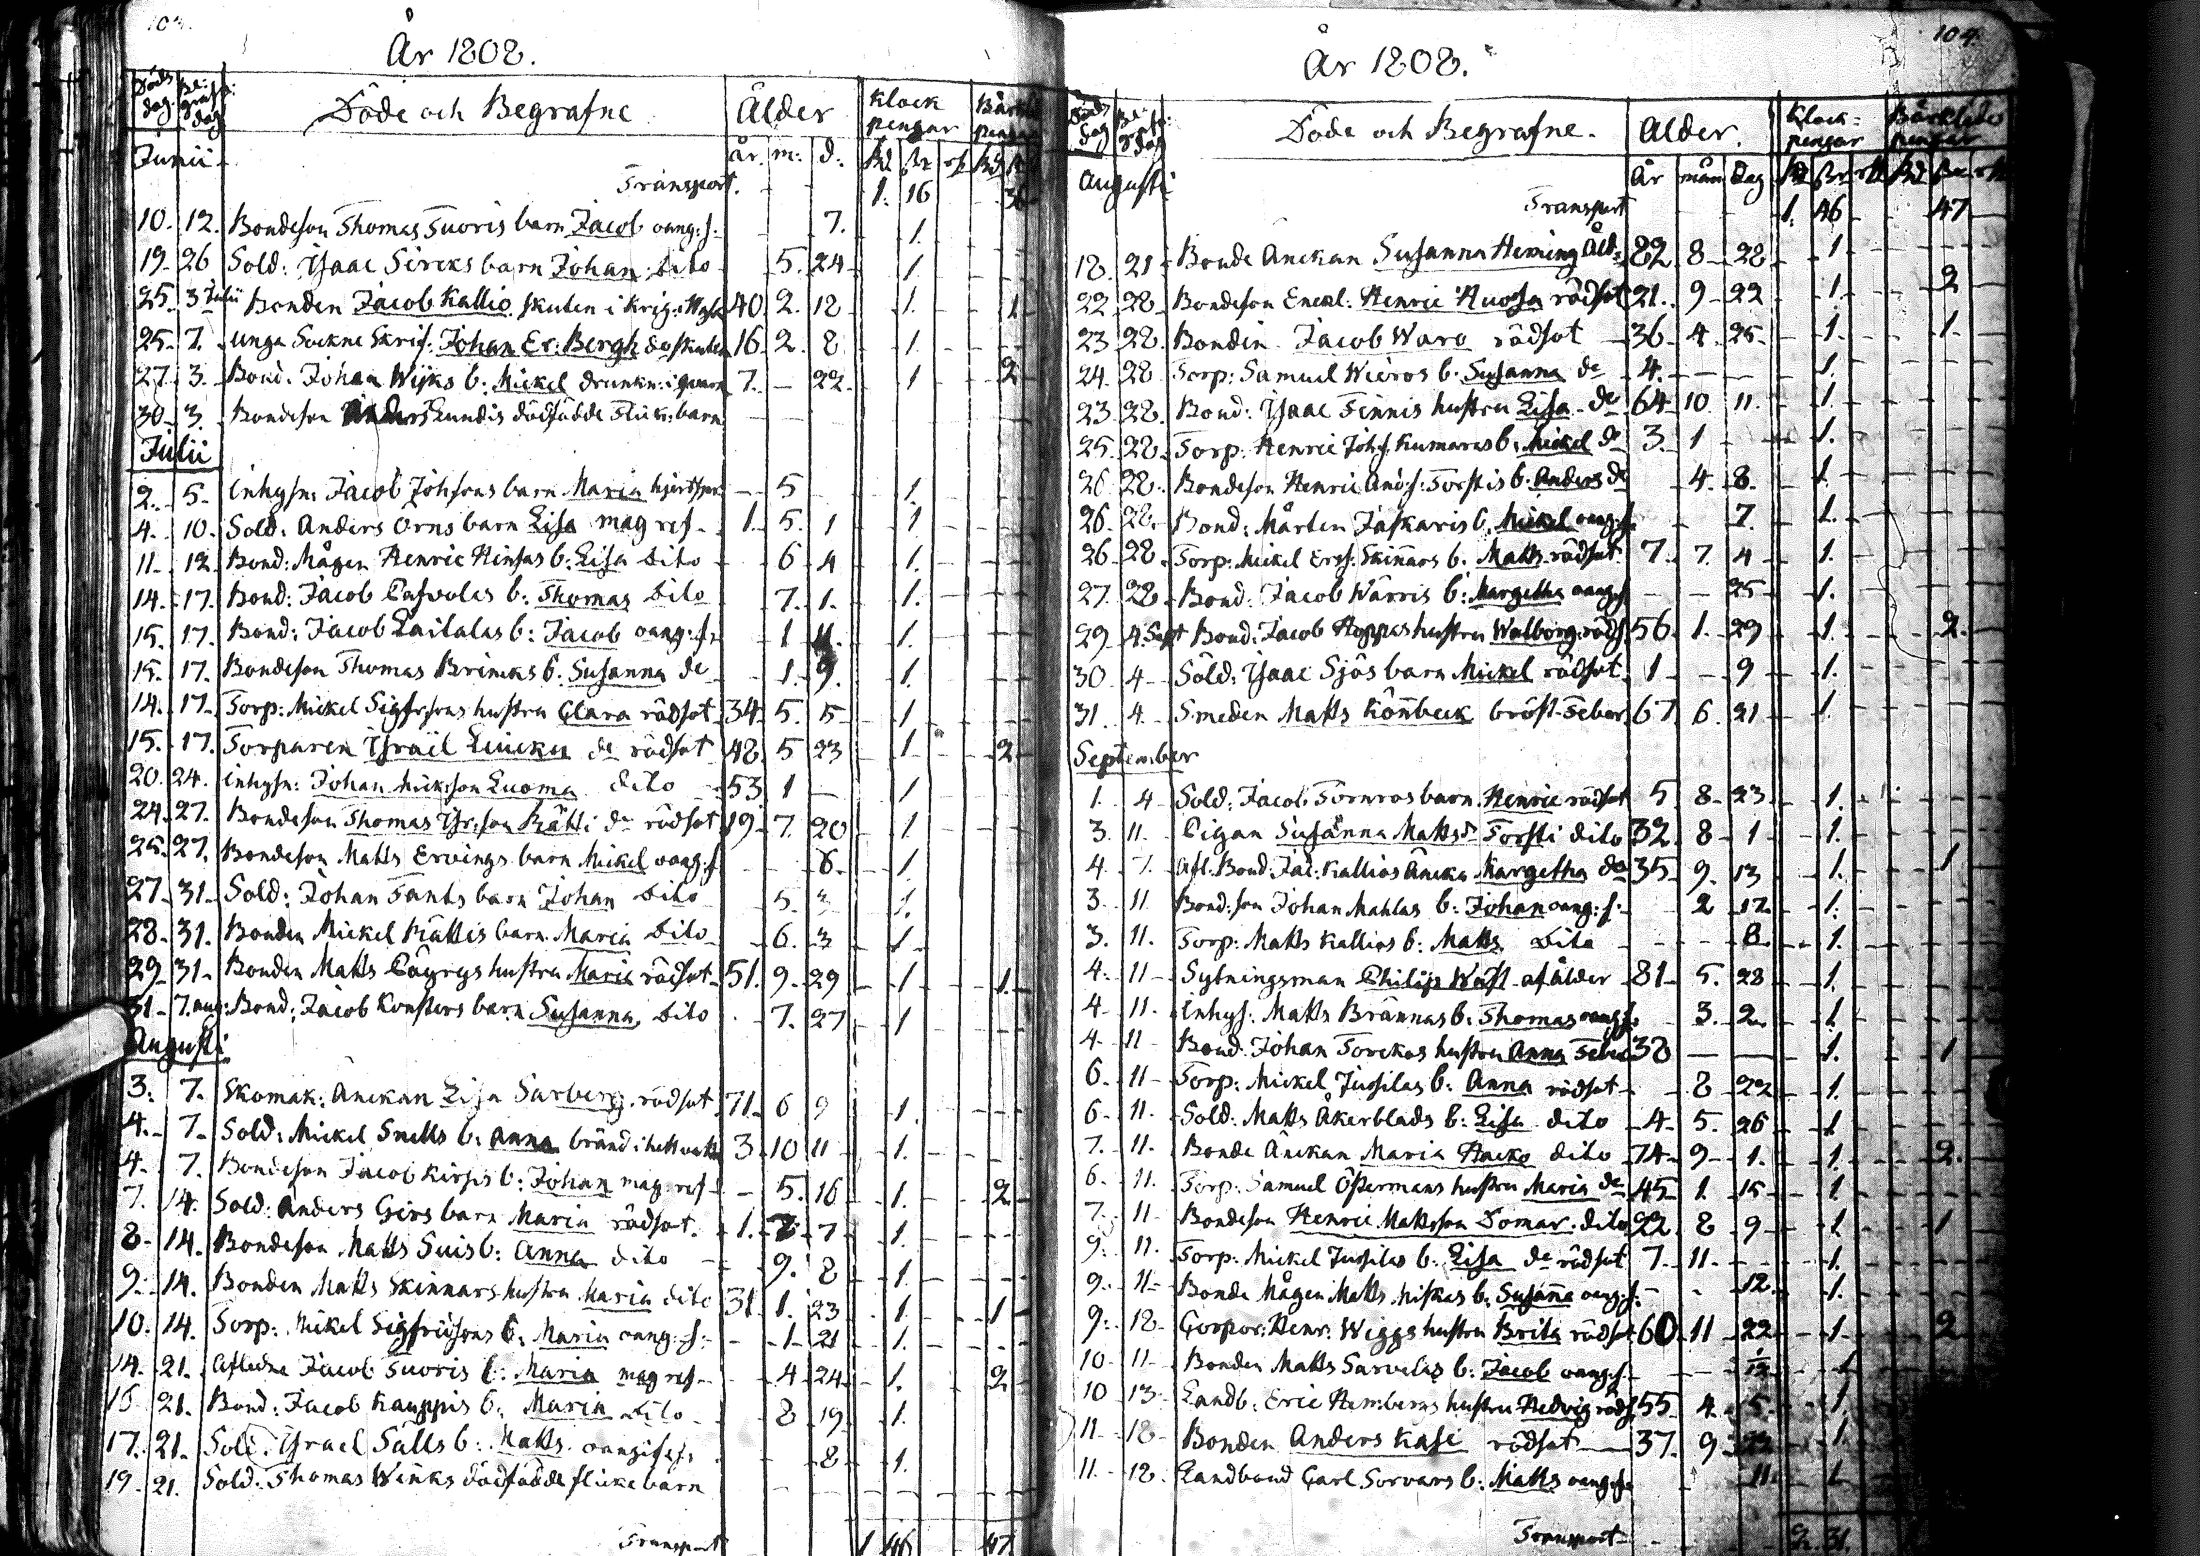 103.
År 1808.
Döds dag. Be: grafn: dag Döde och Begrafne Ålder Klock pengar Bårkl: pengar
Junii år. m: d: Rd ßr rst Rd ßr
Transport. - - 1. 16 36
10. 12. Bondeson Thomas Tuoris barn Jacob oang: s: - 7. 1.
19. 26 Sold: Isaac Sircks barn Johan dito 5. 24 1
25. 3 Julii Bonden Jacob Kallio skuten i krig: 40. 2. 18 1. 1
25. 7. unga Sockne Skrif: Johan Er: Bergh do skuten 16. 2. 8 1
27. 3. Bond. Johan Wijks b: Mickel drunkn: i 7. - 22. 1 2
30. 3. Bondeson Anders Lundis dödfödde barn
Julii
2. 5. inhysn: Jacob Johsons barn Maria - 5 1.
4. 10. Sold: Anders Örns barn Lisa mag ref 1. 5. 1 1
11. 12 Bond: Mågen Henric Hinsas b: Lisa dito 6 4 1.
14. 17. Bond: Jacob b: Thomas dito 7. 1. 1.
15. 17. Bond: Jacob Laitalas b: Jacob oang: s: 1 11. 1.
15. 17. Bondeson Thomas Brincks b: Susanna do 1. 9. 1.
14. 17. Torp: Mickel Sigfrsons hustru Clara rödsot 34. 5. 5 1
15. 17. Torparen Israel do rödsot 48. 5 23 1 2
20. 24. inhysn: Johan Mickson Luoma dito 53 1 - 1
24. 27. Bondeson Thomas Isr:son Rätti do rödsot 19. 7. 20 1
25. 27. Bondeson Matts Ervings barn Mickel oang: s 6. 1
27. 31. Sold: Johan Fants barn Johan dito 5. 1.
28. 31. Bonden Mickel Rättis barn Maria dito 6. 3 1
29. 31. Bonden Matts Cäyrys hustru Maria rödsot 51. 9. 29 1 1.
31. 7. aug: Bond: Jacob Konsters barn Susanna, dito 7. 27 1
Augusti
3. 7. Skomak: änckan Lisa Sarberg. rödsot 71. 6 9 1.
4. 7. Sold: Mickel Snells b: Anna bränd i hett vatt 3 10 11 1.
4. 7. Bondeson Jacob Kirsis b: Johan mag ref 5. 16 1. 2
7. 14. Sold: Anders Girs barn Maria rödsot. 1. 7 1.
8. 14. Bondeson Matts Suis b: Anna dito 9. 8 1.
9. 14. Bonden Matts Skinnars hustru Maria dito 31. 1. 23 1. 1
10. 14. Torp: Mickel Sigfridsons b: Maria oang: s: 1. 21 1.
14. 21. Afledne Jacob Tuoris b: Maria mag ref 4 24 1. 2
16 21. Bond: Jacob Kauppis b: Maria dito 8 19 1.
17. 21. Sold: Israel Sälls b: Matts oangifes: 8 1.
19. 21. Sold: Thomas Wincks dödfödde flicke barn
Transport 1 46 47
104.
År 1808.
Döds dag Be: gr: dag Döde och Begrafne. Ålder. Klock- pengar Bårklede pengar
Augusti År mån Dag Rd ßr rst Rd ßr rst
Transport 1. 46 47
18. 21. Bonde Änckan Susanna Heming Åld: 82. 8 28 1
22. 28. Bondeson Enckl: Henric Huosa rödsot 21. 9 22 1. 2
23. 28. Bonden Jacob Waro rödsot 36. 4. 25 1. 1.
24. 28 Torp: Samuel Wiäros b: Susanna do 4. 1.
23. 28. Bond: Isaac Finnis hustru Lisa do 64. 10 11. 1.
25. 28. Torp. Henric Joh:s. Kumaras b: Mickel do 3. 1 1.
26 28. Bondeson Henric And:s: Torstis b: Anders do 4. 8. 1.
26. 28. Bond: Mårten Jaskaris b. Mickel oang: s 7. 1.
26. 28. Torp: Mickel Ers:s. Skinnars b. Matts rödsot 7. 7. 4 1.
27. 28. Bond. Jacob Wärris b: Margetha oang: s 25 1.
29 4. Sept Bond: Jacob Hoppas hustru Walborg. röds 56. 1. 29 1. 2.
30 4 Sold: Isaac Sjös barn Mickel rödsot 1 9 1.
31. 4. Smeden Matts Könnbeck bröst-Feber 67. 6. 21 1.
September
1. 4 Sold: Jacob Tornros barn Henric rödsot 5. 8. 23. 1.
3. 11. Pigan Susanna Mattsdr Torsti dito 32. 8 1 1.
4. 7. Afl: Bond: Jac: Kallios Äncka Margetha do 35. 9. 13 1. 1
3. 11 Bond: son Johan Mahlas b: Johan oang: s: 2 17. 1.
3. 11. Torp: Matts Kallios b: Matts dito 8. 1.
4. 11 Sytningsman Philip Wäst af ålder 81. 5. 28 1.
4 11. Inhys: Matts Brännas b: Thomas oang: s 3. 2. 1.
4. 11 Bond. Johan Torckos hustru Anna Feber 38 1. 1
6. 11 Torp: Mickel Jussilas b: Anna rödsot 8 22 1.
6. 11. Sold: Matts Åkerblads b: Lisa dito 4. 5. 26 1
7. 11. Bonde Änckan Maria Hacko dito 74. 9 1. 1. 2.
6. 11. Torp: Samuel Östermans hustru Maria do 45. 1. 15 1.
7. 11 Bondeson Henric Mattsson Domar. dito 22. 8 9 1. 1
9. 11. Torp: Mickel Jussilas b: Lisa do rödsot 7. 11. 1.
9. 11 Bonde Mågen Matts Niskas b: Susanna oang: s. 12. 1.
9. 18 Corpor: Henr: Wiggs hustru Brita rödsot 60 11 22 1. 2
10 11 Bonden Matts Sarvelas b: Jacob oang: s. 1/12 1
10 13 Landb: Eric Hembergs hustru Hedvig röds 55. 4. 5. 1.
11 18 Bonden Anders Kase rödsot 37. 9 1.
11. 18. Landbond Carl Sorvars b: Matts oang: s: 11. 1.
Transport 2. 31.